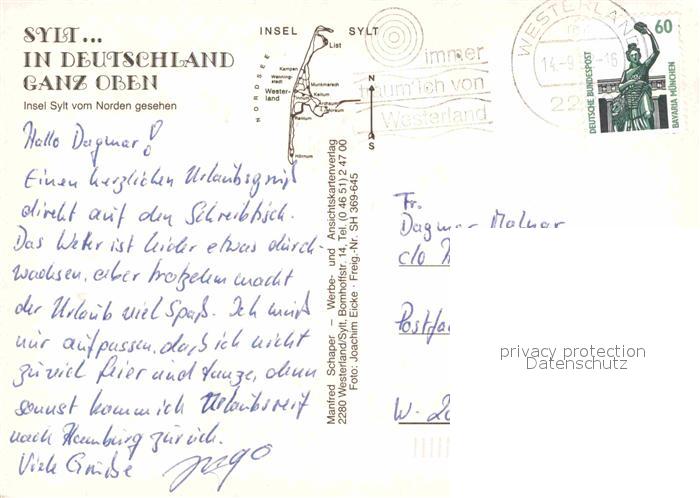 SYLT...
IN DEUTSCHLAND
GANZ OBEN
Insel Sylt vom Norden gesehen
Hallo Dagmar!
Einen herzlichen Urlaubsgruß
direkt auf den Schreibtisch.
Das Wetter ist leider etwas durch-
wachsen, aber trotzdem macht
der Urlaub viel Spaß. Ich muß
nur aufpassen, daß ich nicht
zuviel feier und tanze, denn
sonst komm ich Urlaubsreif
nach Hamburg zurück.
Viele Grüße
INSEL SYLT
NORDSEE
List
Kampen
Wenning-
stedt
Wester-
land
Munkmarsch
Keitum
Archsum
Morsum
Rantum
Hörnum
N
S
Manfred Schaper – Werbe- und Ansichtskartenverlag
2280 Westerland/Sylt, Bomhoffstr. 14, Tel. (0 46 51) 2 47 00
Foto: Joachim Eicke · Freig.-Nr. SH 369-645
immer
träum' ich von
Westerland
WESTERLAND
14.-9.
-16
22
60
DEUTSCHE BUNDESPOST
BAVARIA MÜNCHEN
Fr.
Dagmar Molnar
c/o
W-20
privacy protection
Datenschutz